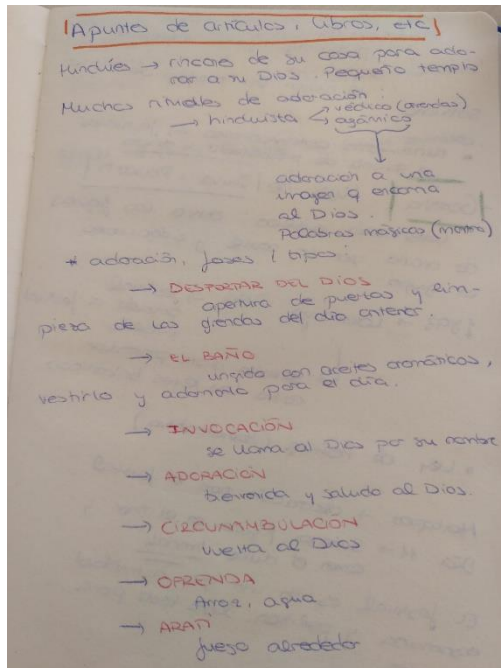 ¡Apuntes de artículos, libros, etc!
Hinduíes → rincones de su casa para ado-
rar a su Dios. Pequeño templo
Muchos rituales de adoración.
→ hinduista védico (ofrendas)
agámico
adoración a una
imagen q encarna
al Dios.
Palabras mágicas (mantra)
* adoración, fases / tipos:
→ DESPERTAR DEL DIOS
apertura de puertas y lim-
pieza de las ofrendas del día anterior.
→ EL BAÑO
ungido con aceites aromáticos,
vestirlo y adornarlo para el día.
→ INVOCACIÓN
se llama al Dios por su nombre
→ ADORACIÓN
bienvenida y saludo al Dios.
→ CIRCUNAMBULACIÓN
vuelta al Dios
→ OFRENDA
Arroz, agua
→ ARATI
fuego alrededor